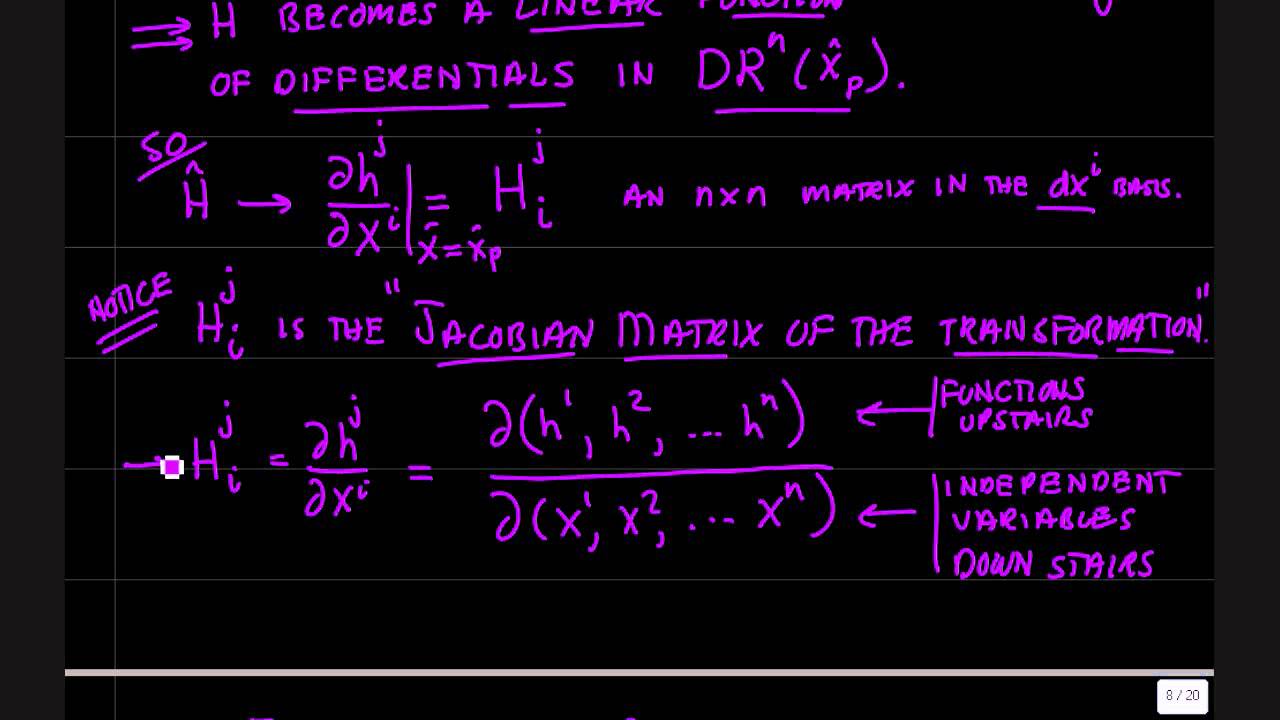 ⇒ H BECOMES A LINEAR FUNCTION
OF DIFFERENTIALS IN DRⁿ(x̂ₚ).
SO
Ĥ → ∂hʲ/∂xⁱ |x̂=x̂ₚ = Hʲᵢ AN n×n MATRIX IN THE dxⁱ BASIS.
NOTICE Hʲᵢ IS THE "JACOBIAN MATRIX OF THE TRANSFORMATION".
→ Hʲᵢ = ∂hʲ/∂xⁱ = ∂(h¹, h², ... hⁿ)/∂(x¹, x², ... xⁿ)
← FUNCTIONS
UPSTAIRS
← INDEPENDENT
VARIABLES
DOWN STAIRS
8 / 20